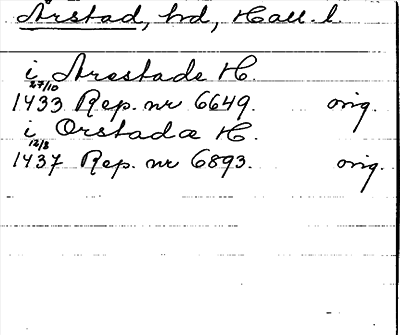 Årstad, hd, Hall. l.
i Arestade H.
27/10
1433 Rep. nr 6649. orig.
i Orstadæ H.
12/3
1437 Rep. nr 6893. orig.